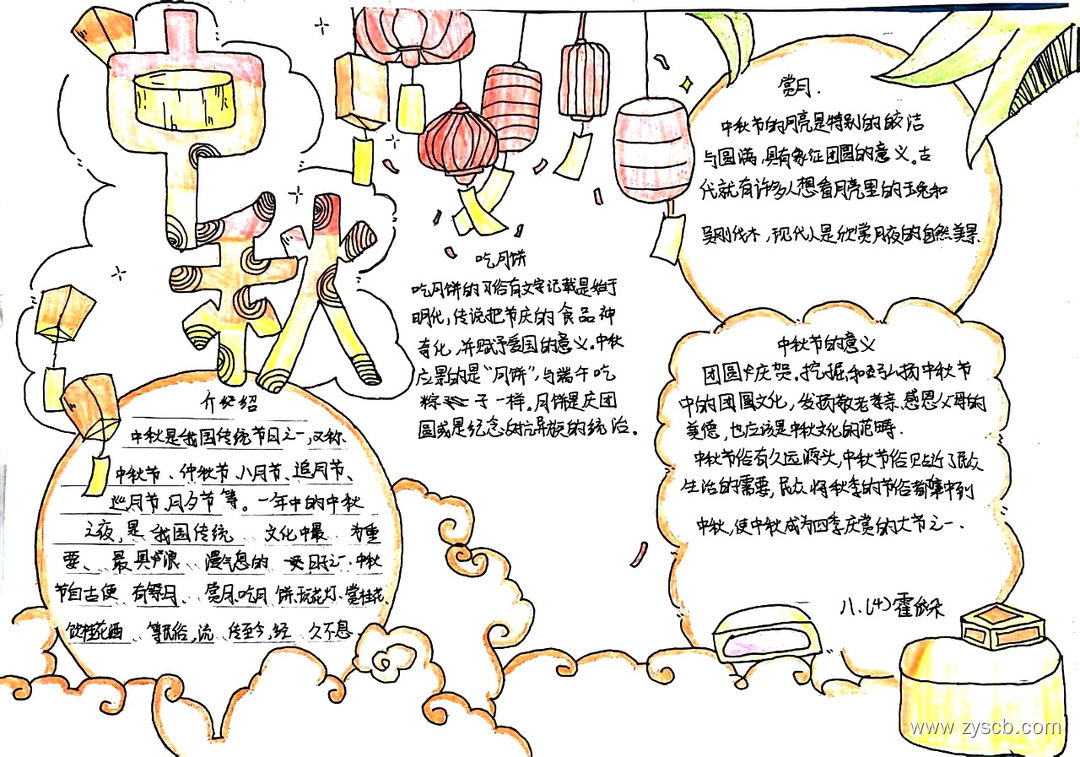 中秋
介绍
中秋是我国传统节日之一,又称
中秋节、仲秋节、八月节、追月节、
巡月节、月夕节等。一年中的中秋
之夜,是我国传统、文化中最、为重
要、最具浪、漫气息的 日之一.中秋
节自古便、有祭月、赏月、吃月饼、玩花灯、赏桂花、
饮桂花酒、等民俗,流、传至今,经、久不息.
吃月饼
吃月饼的习俗有文字记载是始于
明代,传说把节庆的食品神
奇化,并赋予爱国的意义.中秋
应景的是“月饼”,与端午吃
粽子一样。月饼是庆团
圆或是纪念对抗异族的统治。
赏月.
中秋节的月亮是特别的皎洁
与圆满,具有象征团圆的意义。古
代就有许多人想看月亮里的玉兔和
吴刚伐木,现代人是欣赏月夜的自然美景
中秋节的意义
团圆与庆贺.挖掘和弘扬中秋节
中的团圆文化,发扬敬老孝亲.感恩父母的
美德,也应该是中秋文化的范畴.
中秋节俗有久远源头,中秋节俗贴近了民众
生活的需要,民众将秋季的节俗都集中到
中秋,使中秋成为四季庆赏的大节之一.
八.(4)霍
www.zyscb.com